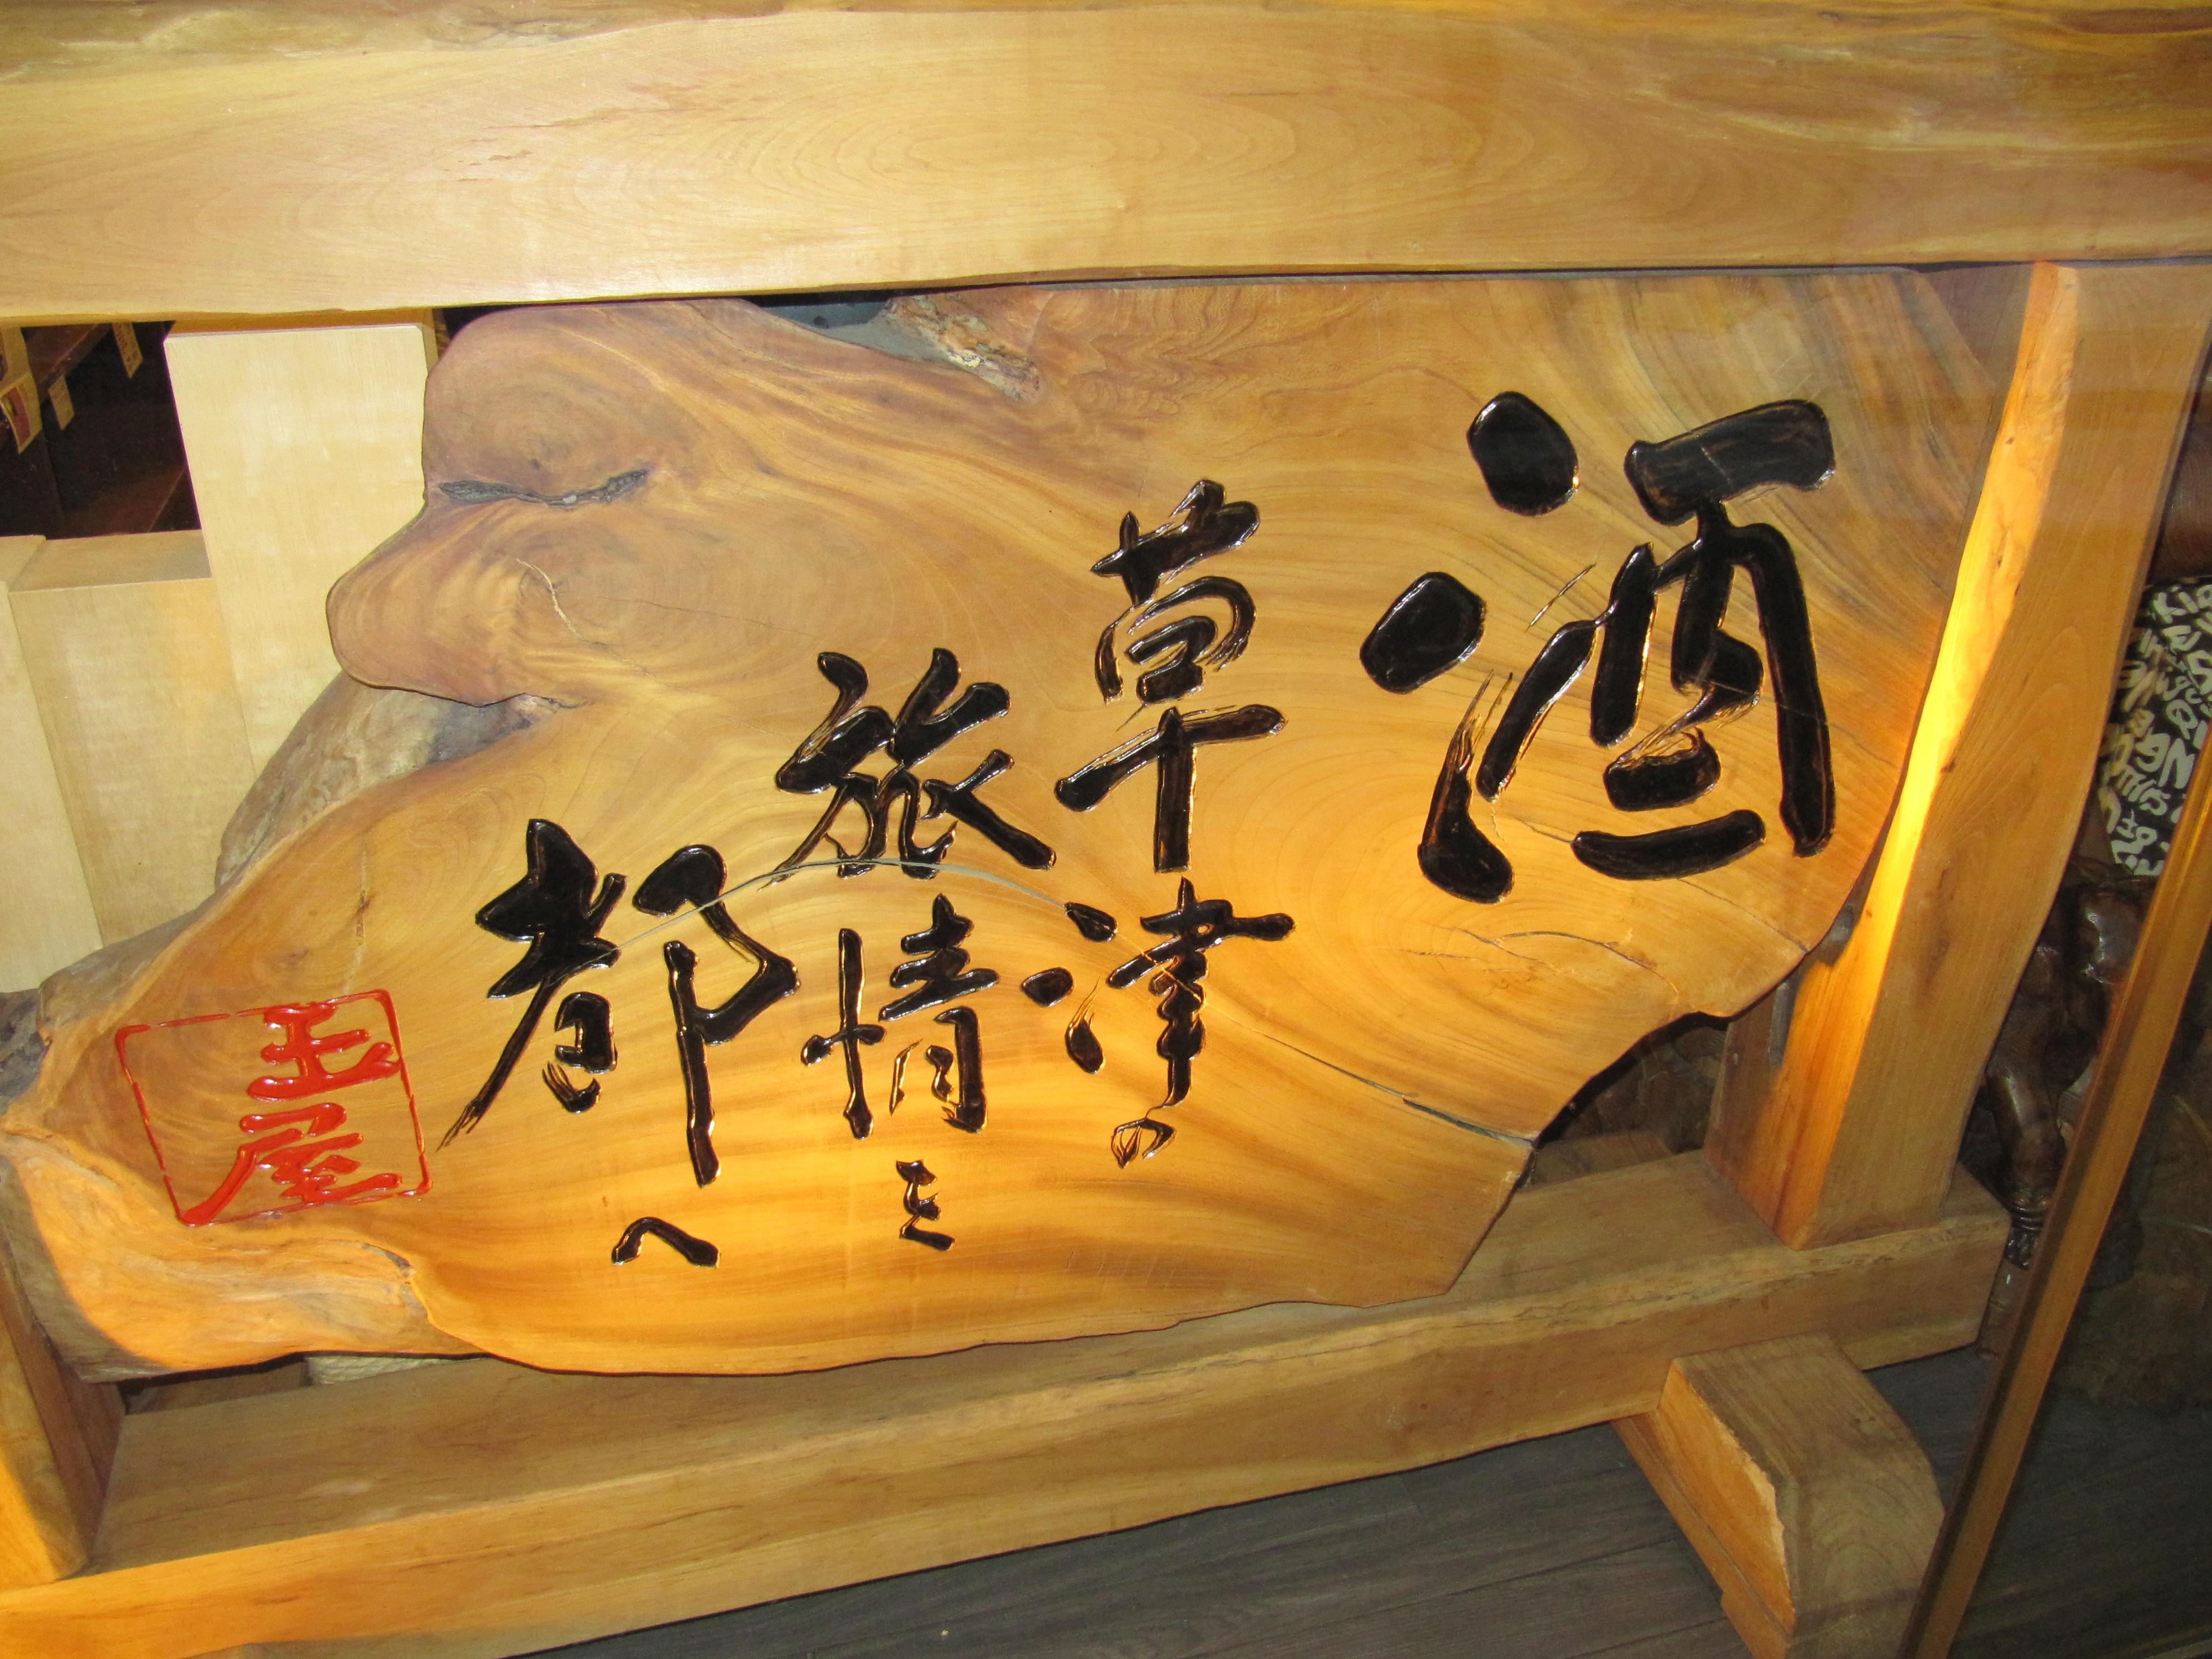 酒
草津の
旅情を
都へ
玉屋